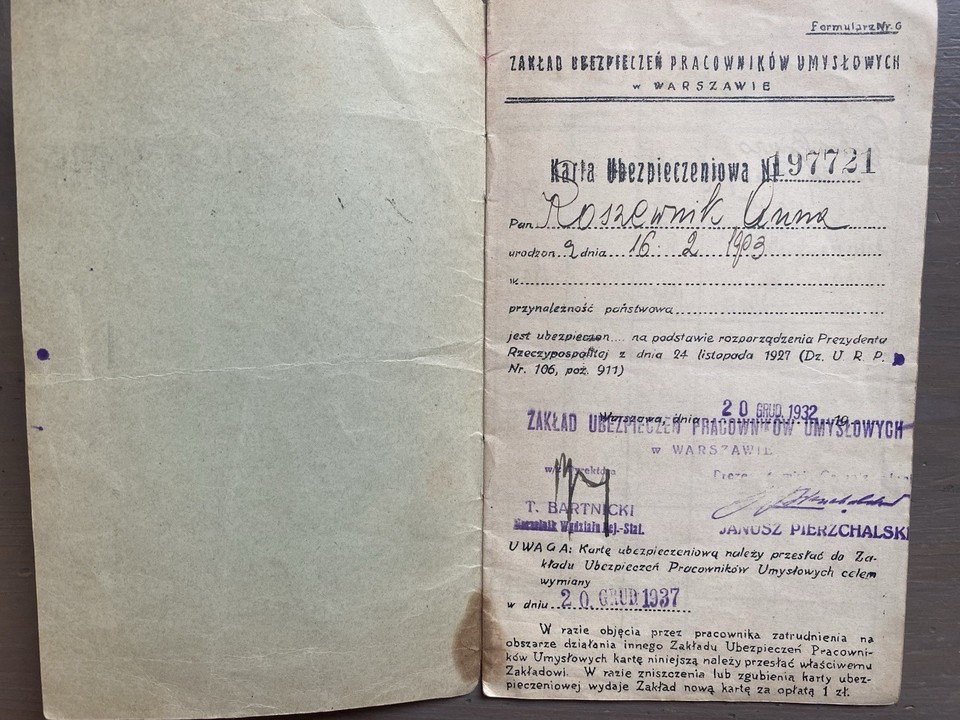 Formularz Nr. 6
ZAKŁAD UBEZPIECZEŃ PRACOWNIKÓW UMYSŁOWYCH
w WARSZAWIE
Karta Ubezpieczeniowa Nr 197721
Pan Roszewnik Anna
urodzon a dnia 16. 2 1903
w
przynależność państwowa
jest ubezpieczon.... na podstawie rozporządzenia Prezydenta
Rzeczypospolitej z dnia 24 listopada 1927 (Dz. U. R. P.
Nr. 106, poz. 911)
Warszawa, dnia 20 GRUD. 1932 19
ZAKŁAD UBEZPIECZEŃ PRACOWNIKÓW UMYSŁOWYCH
w WARSZAWIE
T. BARTNICKI
Naczelnik Wydziału Rej.-Stat.
JANUSZ PIERZCHALSKI
UWAGA: Kartę ubezpieczeniową należy przesłać do Za-
kładu Ubezpieczeń Pracowników Umysłowych celem
wymiany
w dniu 20 GRUD 1937
W razie objęcia przez pracownika zatrudnienia na
obszarze działania innego Zakładu Ubezpieczeń Pracowni-
ków Umysłowych kartę niniejszą należy przesłać właściwemu
Zakładowi. W razie zniszczenia lub zgubienia karty ubez-
pieczeniowej wydaje Zakład nową kartę za opłatą 1 zł.